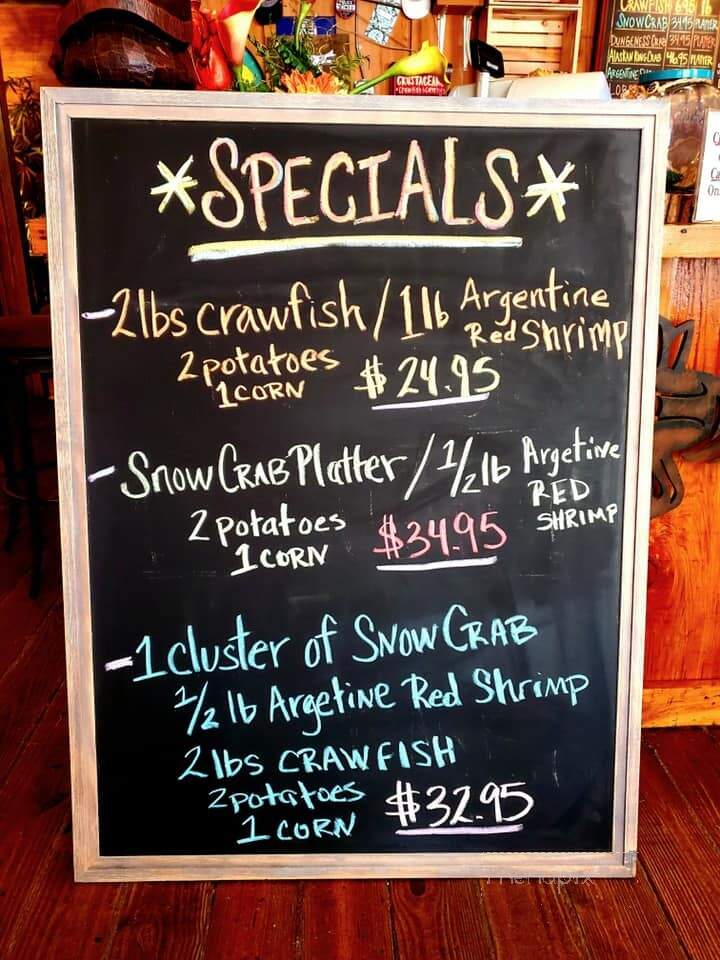 CRAWFISH 6.95 lb
SNOWCRAB 34.95 PLATTER
DUNGENESS CRAB 34.95 PLATTER
ALASKAN KING CRAB 46.95 PLATTER
ARGENTINE
CRUSTACEAN
*SPECIALS*
-2lbs crawfish / 1lb Argentine
Red Shrimp
2 potatoes
1 CORN
$24.95
-SNOW CRAB Platter / 1/2 lb Argetine
RED
SHRIMP
2 potatoes
1 CORN
$34.95
-1 cluster of SNOW CRAB
1/2 lb Argetine Red Shrimp
2 lbs CRAWFISH
2 potatoes
1 CORN
$32.95